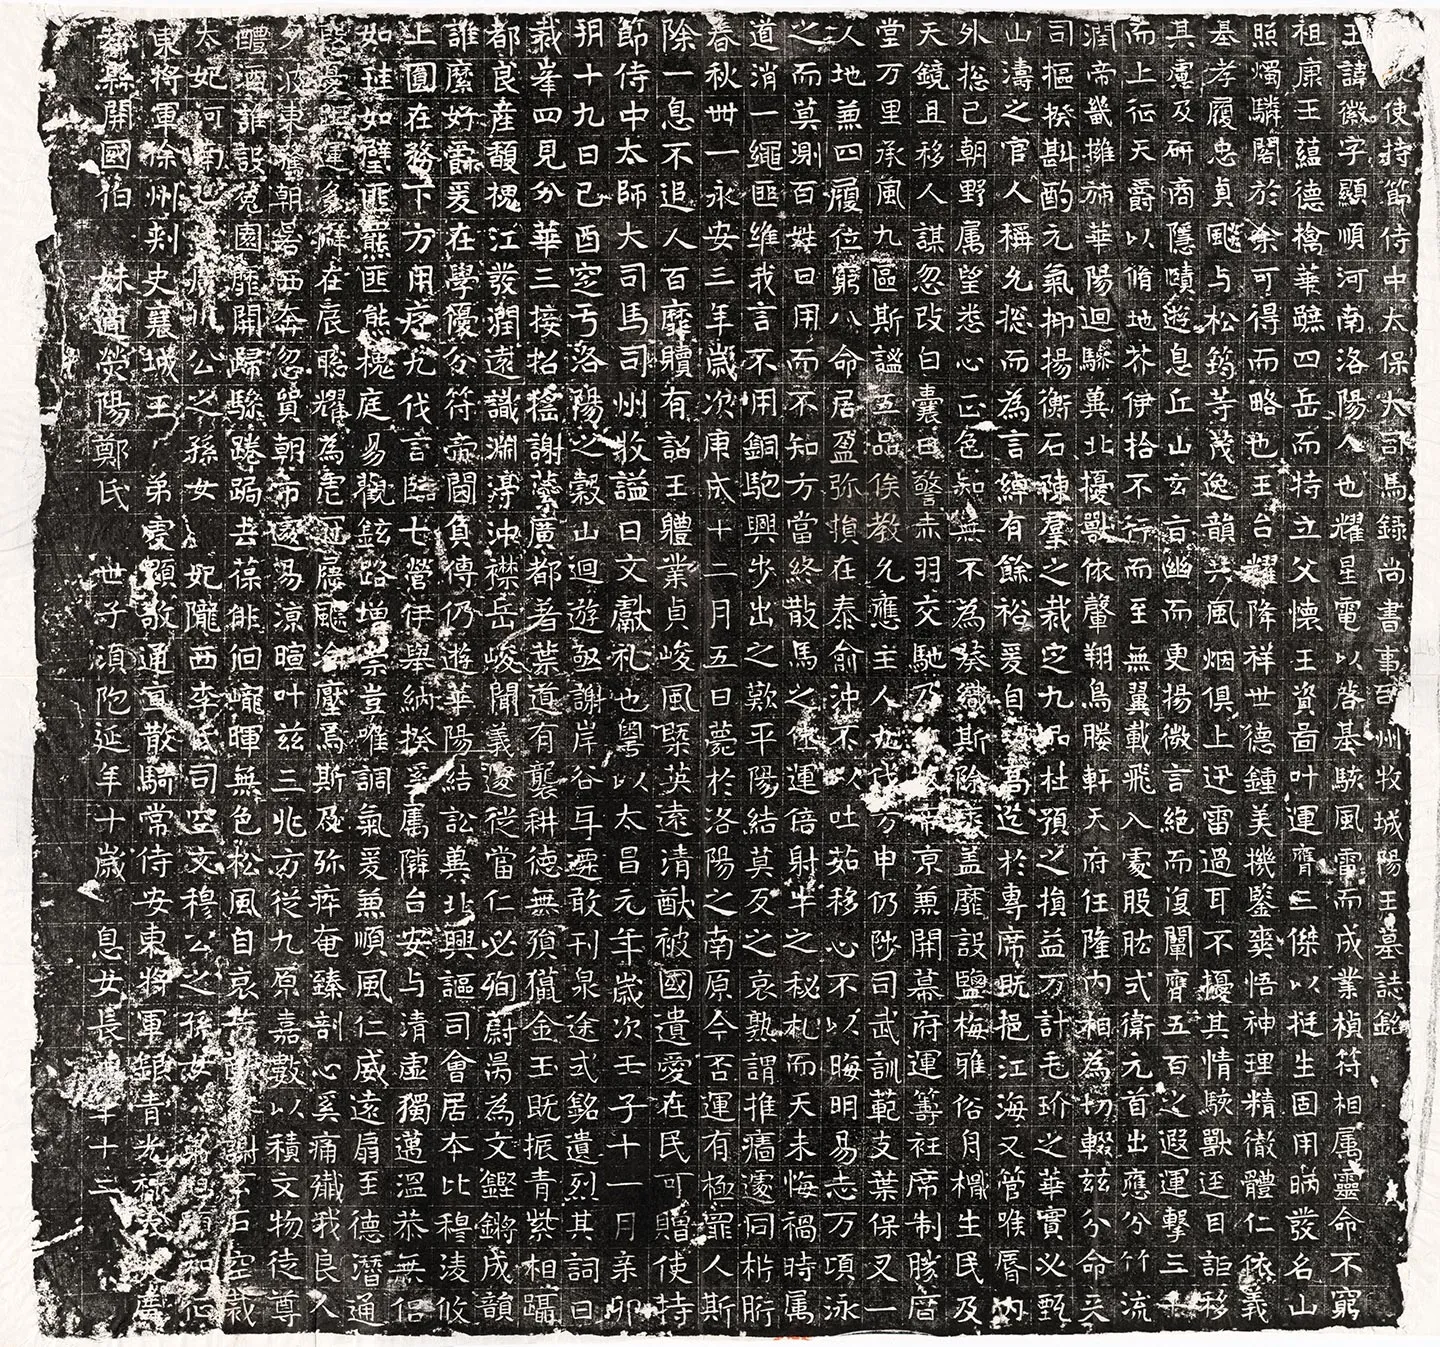 使持節侍中太保大司馬錄尚書事司州牧城陽王墓誌銘
王諱徽字顯順河南洛陽人也耀星電以啓基駭風雷而成業楨符相属靈命不窮
祖康王蘊德檎華蹠四岳而特立父懷王資啚叶運膺三傑以挺生固用昞發名山
照燭驎閣於余可得而略也王台耀降祥世德鍾美機鑒奭悟神理精徹體仁依義
基孝履忠貞飈与松筠等茂逸韻共風烟俱上迅雷過耳不擾其情駭獸逕目詎移
其慮及研商隱賾遊息丘山玄言幽而更揚微言絕而復闡膺五百之遐運擊三千
而上征天爵以脩地芥伊拾不行而至無翼載飛入處股肱式衛元首出應分竹流
潤帝畿擁旆華陽迴驂冀北擾獸依馨翔鳥勝軒天府任隆內相為切輟茲分命爰
司樞揆斟酌元氣抑揚衡石陳羣之裁定九品杜預之損益万計毛玠之華實必甄
山濤之官人稱允捴而為言綽有餘裕爰自高迄於專席既挹江海又管喉脣內
外捴己朝野属望悉心正色知無不為癸斯除襄盖靡設鹽梅雅俗舟檝生民及
天鏡且移人謀忽改白囊田警赤羽交馳乃京兼開幕府運籌衽席制勝唇
堂万里承風九區斯謐五品俟教允應主人九伐方申仍陟司武訓範支葉保乂一
人地兼四履位窮八命居盈弥損在泰俞沖不以吐茹移心不以晦明易志万頃泳
之而莫測百姓日用而不知方當終散馬之任運倍射牛之秘札而天未悔禍時属
道消一繩匪維我言不用銅駝興步出之歎平陽結莫反之哀熟謂推癗遽同析胻
春秋卌一永安三年歲次庚戌十二月五日薨於洛陽之南原今否運有極罪人斯
除一息不追人百靡贖有詔王體業貞峻風槩英遠清猷被國遺愛在民可贈使持
節侍中太師大司馬司州牧謚曰文獻礼也粵以太昌元年歲次壬子十一月亲卯
朔十九日己酉窆于洛陽之穀山迴遊毀謝岸谷互遷敢刊泉途式銘遺烈其詞曰
裁峯四見分華三接招搖謝藻廣都著葉道有襲耕德無殞獵金玉既振青紫相躡
都良產馥槐江發潤遠識淵渟沖襟岳峻聞義遂從當仁必殉蔚昺為文鏗鏘成韻
誰縻好爵爰在學優分符帝閫負傳仍遊華陽結訟冀北興謳司會居本比穆淩攸
上圓在務下方用庇九伐言臨七營伊舉納揆爰屬隣台安与清虛獨邁溫恭無侶
如珪如璧匪熊匪熊槐庭易觀鉉路增崇豈唯調氣爰兼順風仁威遠扇至德潛通
在扆聰耀為虐飈淪壓焉斯及弥瘁奄臻剖心奚痛殱我良人
夕波東驚朝晷西奔忽貿朝市遽易涼暄叶茲三兆方從九原嘉數以積文物徒尊
醴酒誰設兔園靡開歸驂踡跼去葆俳佪巄暉無色松風自哀謝玄石空裁
太妃河南公之孫女妃隴西李氏司空文穆公之孫女
東將軍徐州刺史襄城王弟虔顯敬通直散騎常侍安東將軍銀青光祿大夫廣
都縣開國伯妹適熒陽鄭氏世子須陀延年十歲息女長年十三